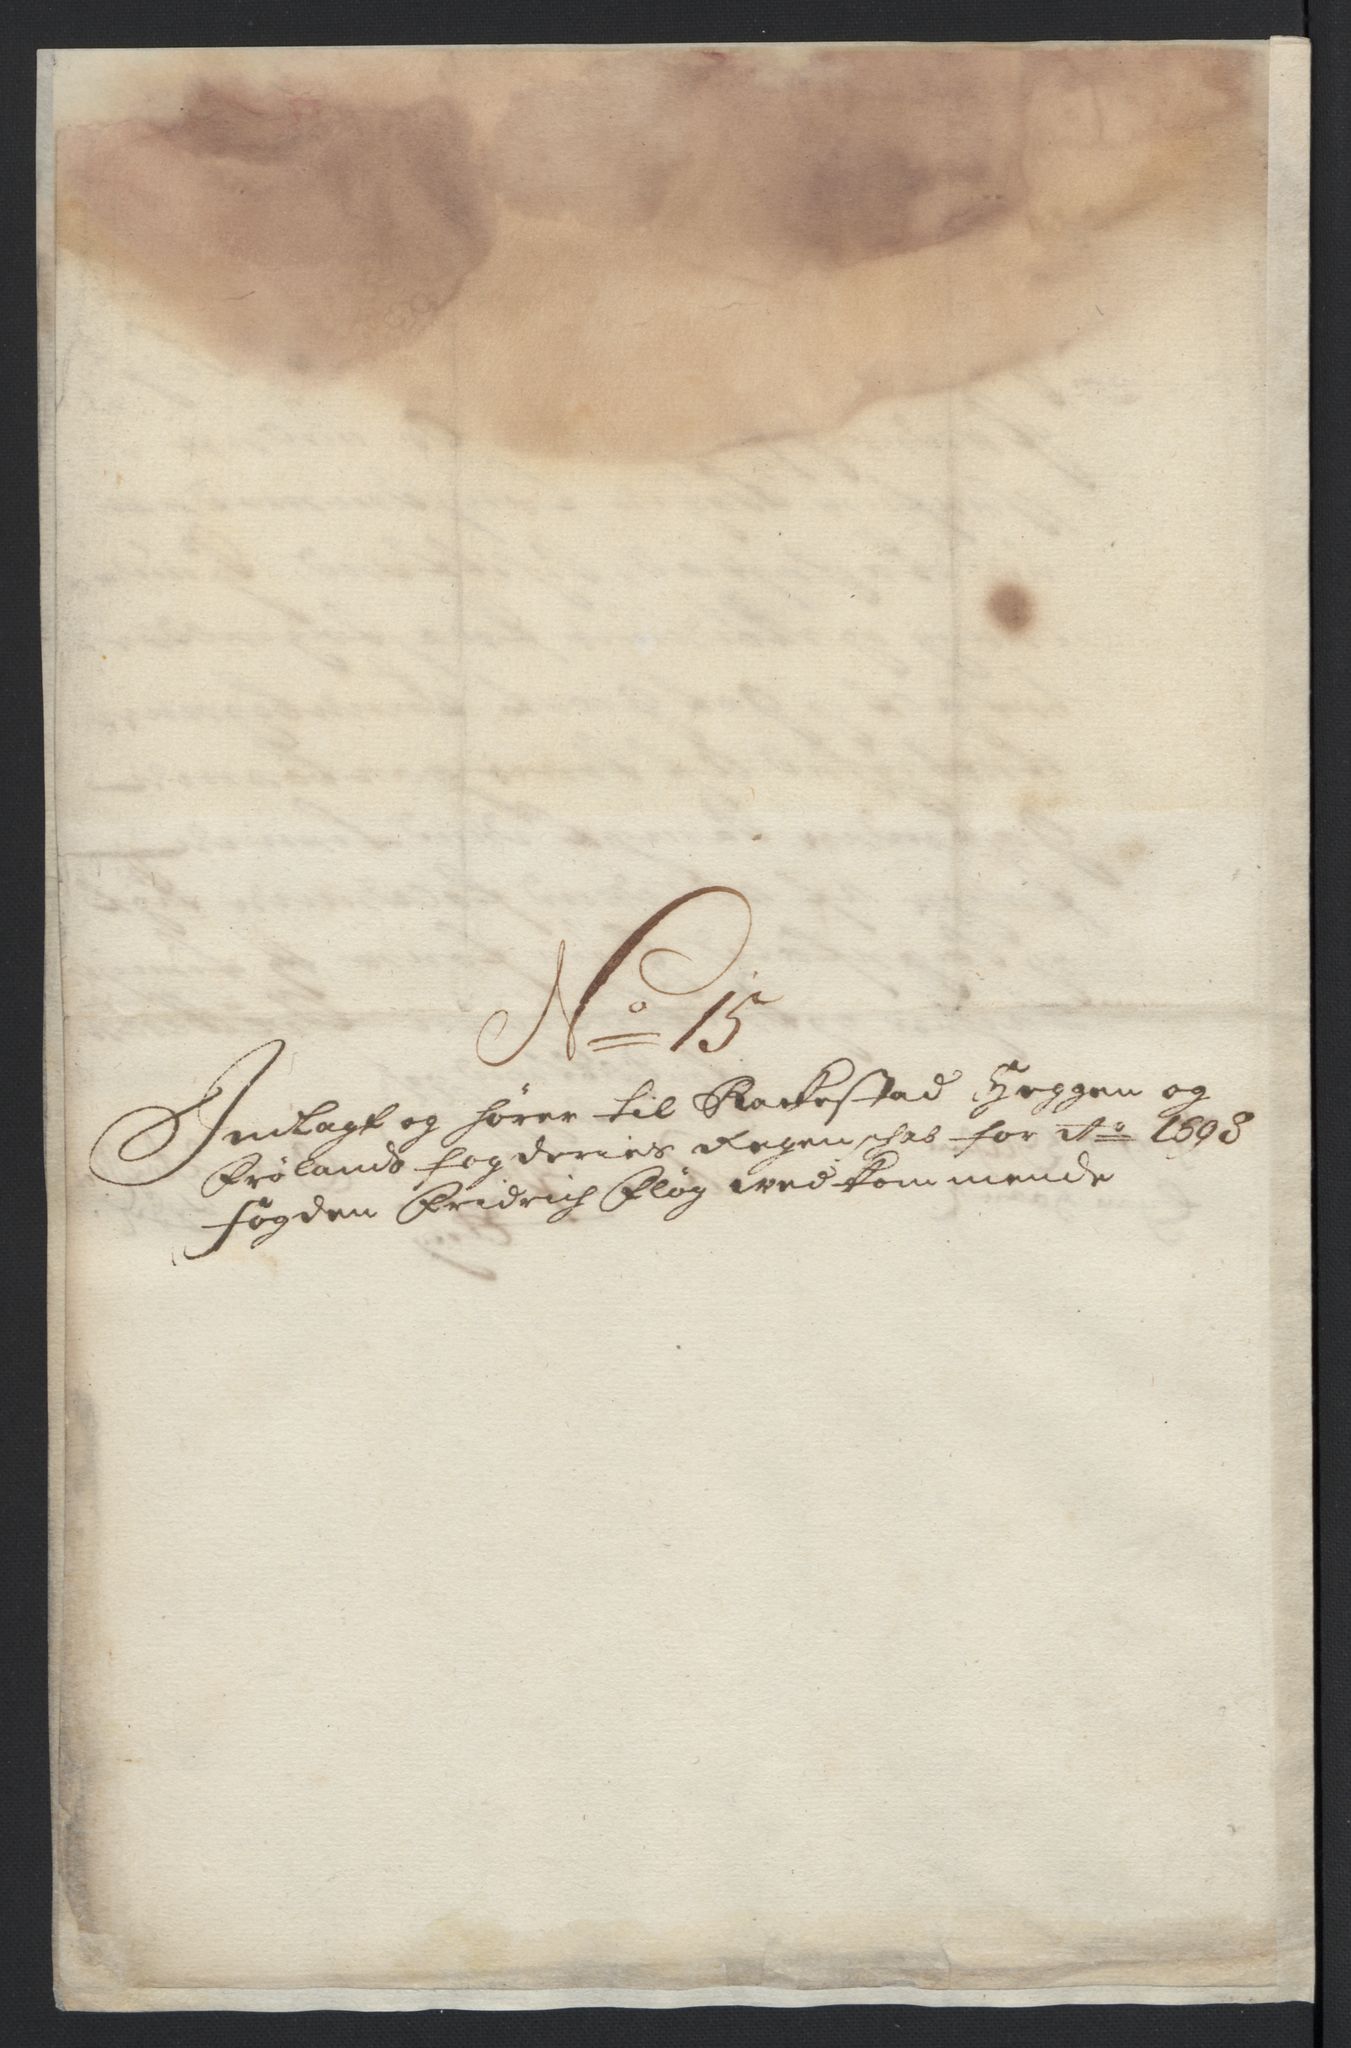 No 15
Indlagt og hører til Rackestad Heggen og
Frølands fogderies Regenschab for Ao 1698
fogden Fridrich Fløg wedkommende